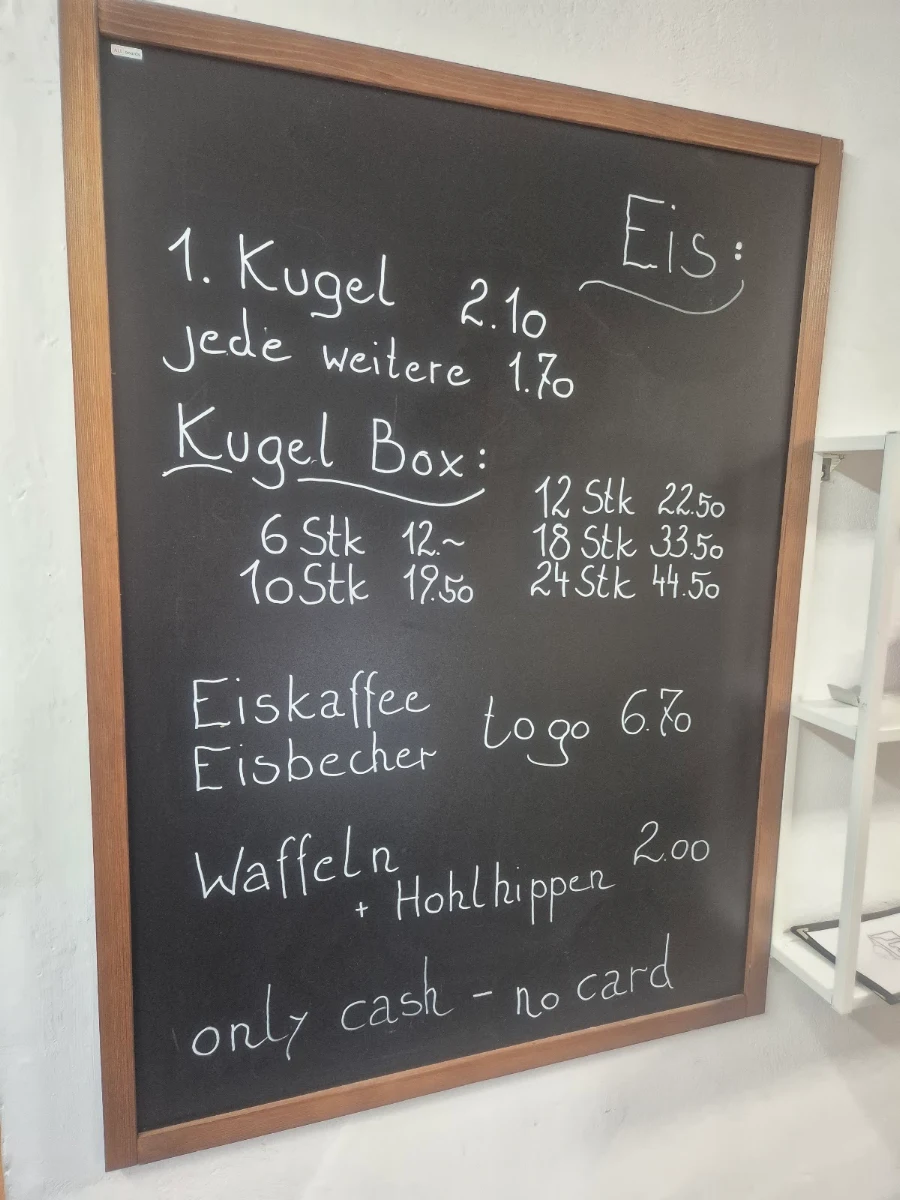 Eis:
1. Kugel 2.10
jede weitere 1.70
Kugel Box:
6 Stk 12.~
10 Stk 19.50
12 Stk 22.50
18 Stk 33.50
24 Stk 44.50
Eiskaffee
Eisbecher
to go 6.70
Waffeln
+ Hohlhippen 2.00
only cash - no card